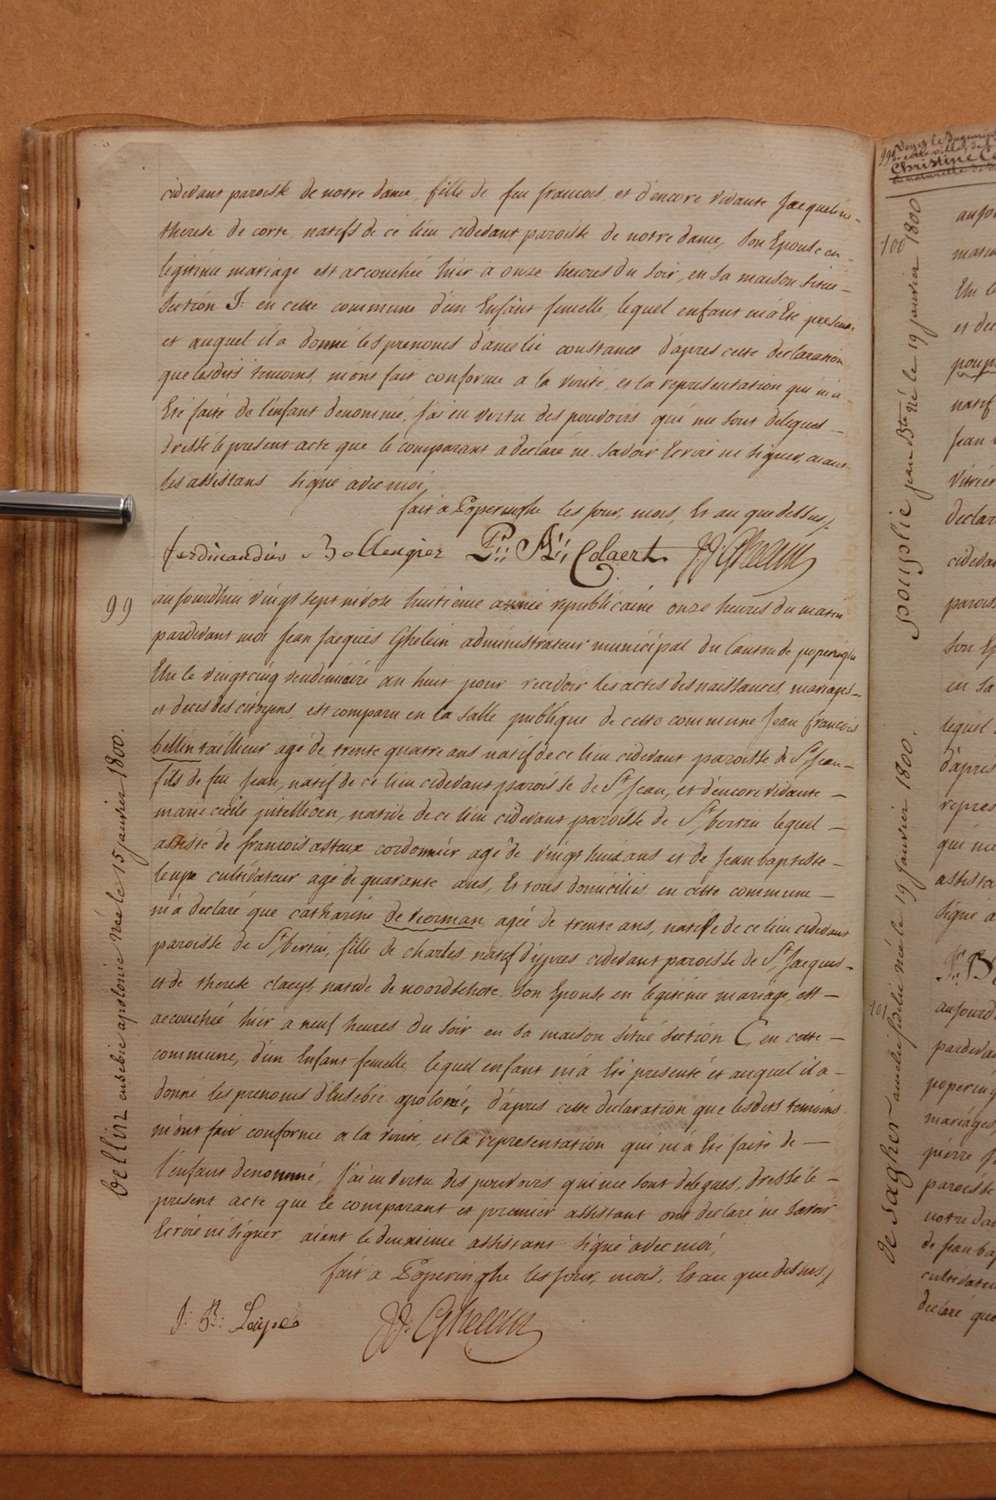 cidevant paroisse de notre dame, fille de feu francois, et d'encore vivante Jacqueline
therese de corte, natifs de ce lieu cidevant paroisse de notre dame, son Epouse en
legitime mariage est accouchée hier a onze heures du soir, en sa maison située
Section J: en cette commune d'un Enfant femelle, lequel enfant m'a Eté presenté
et auquel il a donné les prenoms d'amelie constance d'apres cette declaration
que lesdits temoins, m'ont fait conforme a la verité, et la representation qui m'a
Eté faite de l'enfant denommé, j'ai en vertu des pouvoirs qui me sont delegués
dressé le present acte que le comparant a declaré ne savoir Ecrire ni signer, aiant
les assistans signé avec moi,
fait a Poperinghe les jour, mois, Et an que dessus,
ferdinandus Bollengier P:: A:: Colaert J J: Ghelein
99
aujourdhui vingt sept nivose huitieme année republicaine onze heures du matin
pardevant moi Jean Jacques Ghelein administrateur municipal du Canton de poperinghe
Elu le vingt cinq vendemiaire an huit pour recevoir les actes des naissances, mariages
et deces des citoyens, est comparu en la salle publique de cette commune Jean francois
bellin tailleur agé de trente quatre ans natif de ce lieu cidevant paroisse de St Jean
fils de feu Jean, natif de ce lieu cidevant paroisse de St Jean, et d'encore vivante
marie cecile pitellioen, native de ce lieu cidevant paroisse de St bertin lequel
assisté de francois asteux cordonnier agé de vingt huit ans et de Jean baptiste
leupe cultivateur agé de quarante ans, Et tous domiciliés en cette commune
m'a declaré que catharine de vierman, agée de trente ans, native de ce lieu cidevant
paroisse de St bertin, fille de charles, natif d'ypres cidevant paroisse de St Jacques
et de therese claeys native de noordschote, son Epouse en legitime mariage, est
accouchée hier a neuf heures du soir en sa maison située section C, en cette
commune, d'un Enfant femelle lequel enfant m'a Eté presenté et auquel il a
donné les prenoms d'Eusebie apolonie, d'apres cette declaration que lesdits temoins
m'ont fait conforme a la verité, et la representation qui m'a Eté faite de
l'enfant denommé, j'ai en vertu des pouvoirs qui me sont delegués, dressé le
present acte que le comparant et premier assistant ont declaré ne savoir
Ecrire ni signer aiant le deuxieme assistant signé avec moi,
fait a Poperinghe les jour, mois, Et an que dessus,
J: B: Leupe J J: Ghelein
bellin eusebie apolonie née le 15 janvier 1800.
100
pouplie jean Bte né le 19 janvier 1800
101
de sagher amelie née le 19 janvier 1800.